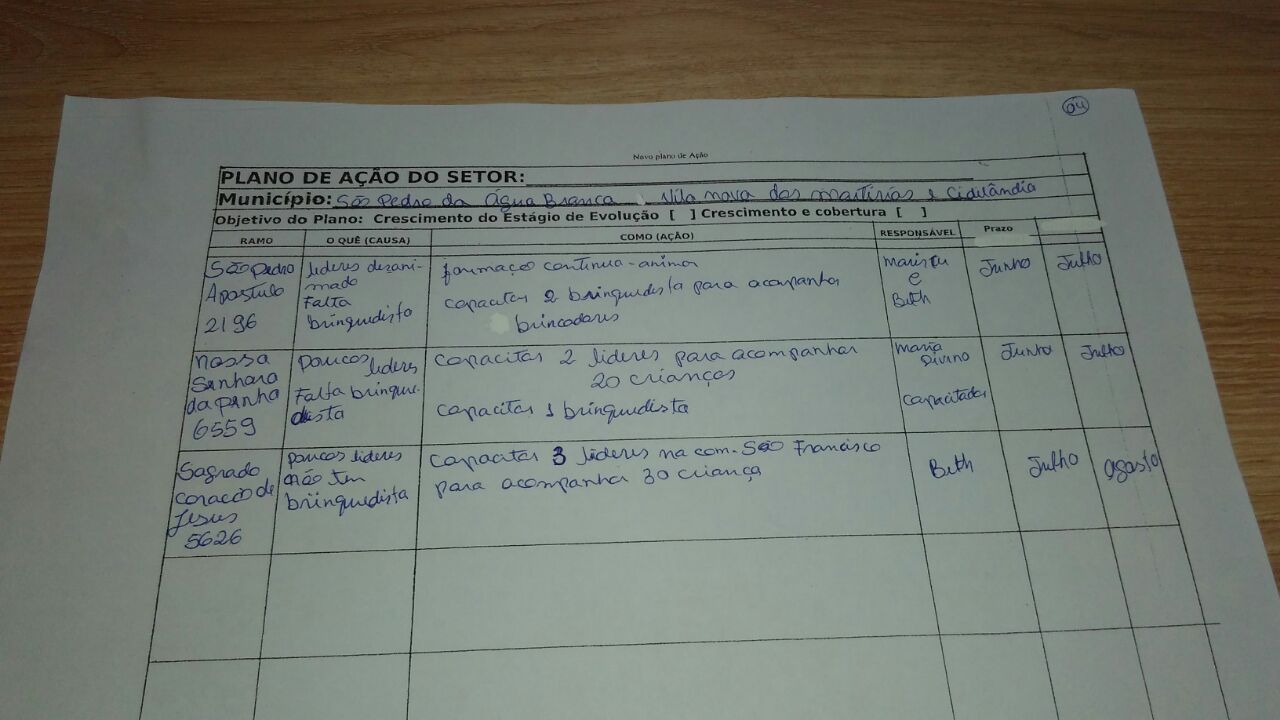 04
Novo plano de Ação
PLANO DE AÇÃO DO SETOR:
Município: São Pedro da Água Branca, Vila nova dos martirias e Cidilândia
Objetivo do Plano: Crescimento do Estágio de Evolução [ ] Crescimento e cobertura [ ]
RAMO O QUÊ (CAUSA) COMO (AÇÃO) RESPONSÁVEL Prazo
São Pedro
Apostulo
2196
lideres dezani-
mado
Falta
brinquedista
formaço continua - animar
capacitar 2 brinquedista para acompanhar
brincadores
e
Beth
Junho
Julho
nossa
Senhora
da penha
6559
poucos
lideres
Falta brinque-
dista
Capacitar 2 lideres para acompanhar
20 crianços
capacitar 1 brinquedista
maria
Divino
capacitador
Junho
Julho
Sagrado
coracão de
Jesus
5626
poucos lideres
não tem
brinquedista
Capacitar 3 lideres na com. São Francisco
para acompanhar 30 criança
Beth
Julho
agosto